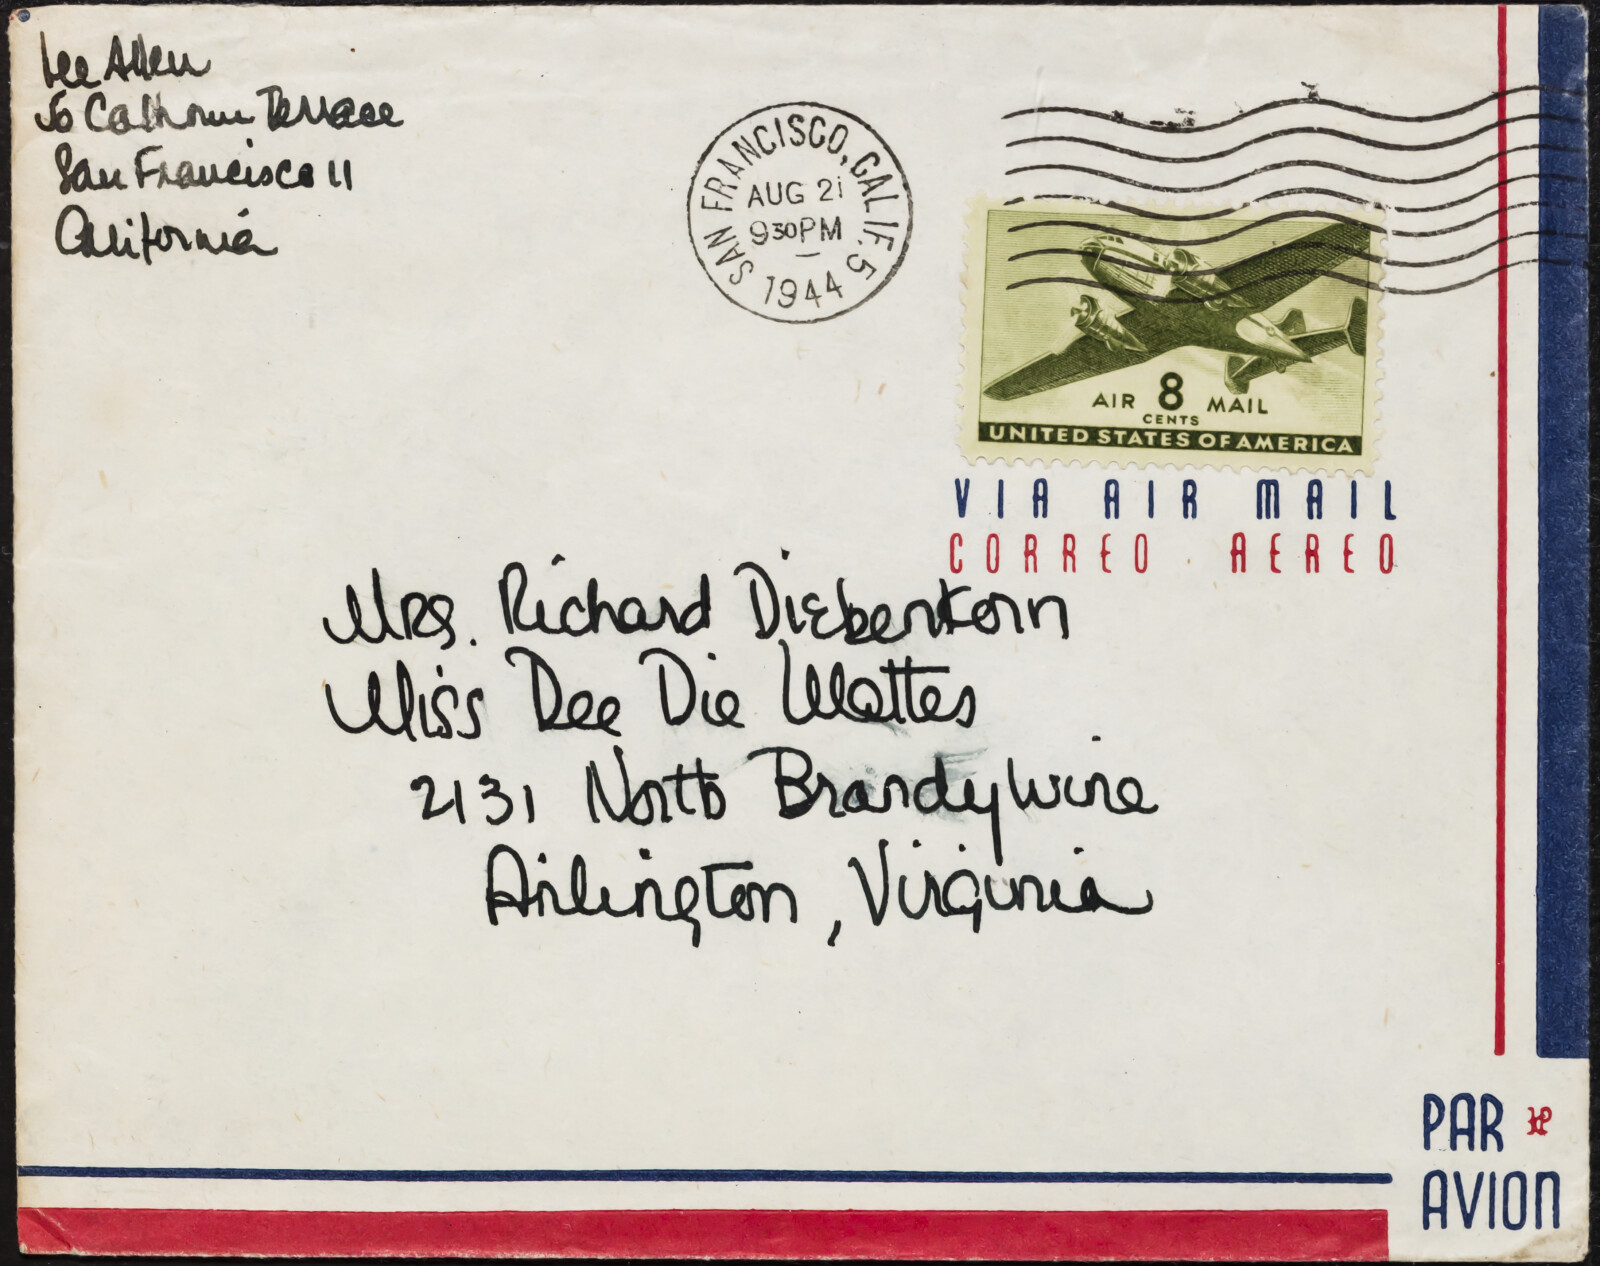 Lee Allen
50 Calhoun Terrace
San Francisco 11
California
SAN FRANCISCO, CALIF. 5
AUG 21
930PM
1944
AIR 8 MAIL
CENTS
UNITED STATES OF AMERICA
VIA AIR MAIL
CORREO AEREO
Mrs. Richard Diebenkorn
Miss Dee Die Wattes
2131 North Brandywine
Arlington, Virginia
PAR
AVION